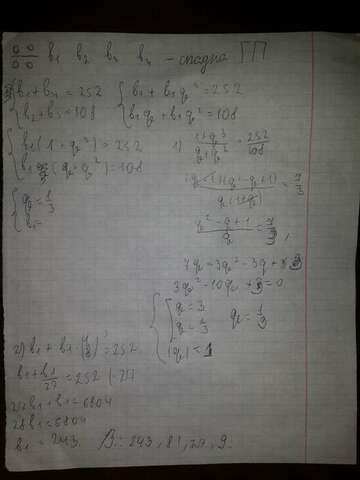 b₁ b₂ b₃ b₄ – спадна ГП
b₁ + b₄ = 252
b₂ + b₃ = 108
b₁ + b₁q³ = 252
b₁q + b₁q² = 108
b₁(1 + q³) = 252
b₁(q + q²) = 108
1) (1 + q³)/(q + q²) = 252/108
(q + 1)(q² - q + 1)/q(1 + q) = 7/3
q = 1/3
b₁ =
(q² - q + 1)/q = 7/3,
3q² - 10q + 3 = 0
q = 3
q = 1/3
q = 1/3
2) b₁ + b₁ · (1/3)³ = 252
b₁ + b₁/27 = 252 | · 27
27b₁ + b₁ = 6804
28b₁ = 6804
b₁ = 243.
В.: 243, 81, 27, 9.